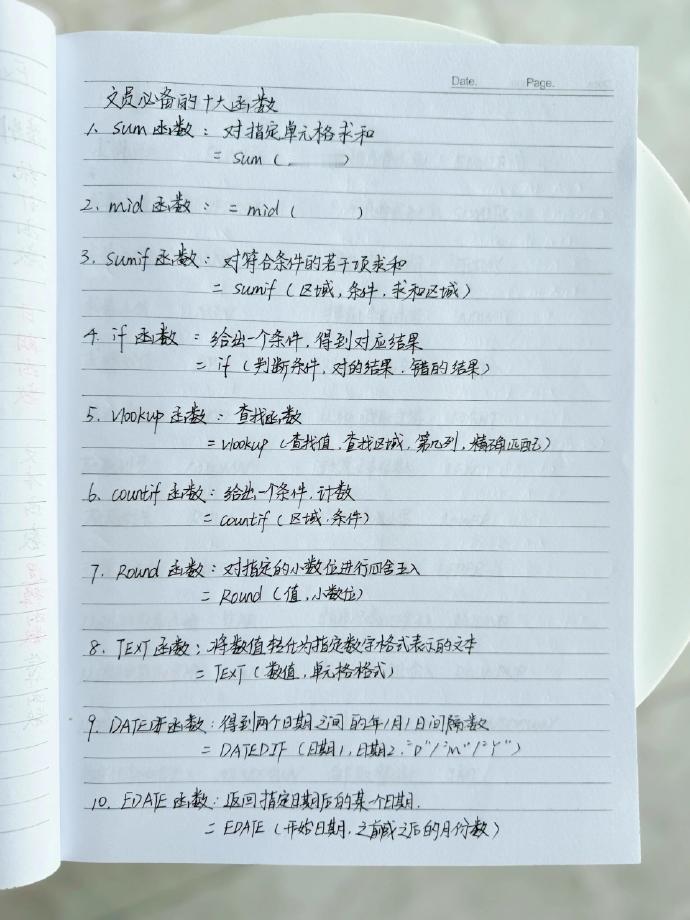 Date.    Page.
文员必备的十大函数
1、sum函数：对指定单元格求和
= sum (      )
2、mid函数：= mid (      )
3、sumif函数：对符合条件的若干项求和
= sumif (区域，条件，求和区域)
4、if函数：给出一个条件，得到对应结果
= if (判断条件，对的结果，错的结果)
5、vlookup函数：查找函数
= vlookup (查找值，查找区域，第几列，精确匹配)
6、countif函数：给出一个条件，计数
= countif (区域，条件)
7、Round函数：对指定的小数位进行四舍五入
= Round (值，小数位)
8、TEXT函数：将数值转化为指定数字格式表示的文本
= TEXT (数值，单元格格式)
9、DATEDIF函数：得到两个日期之间的年/月/日间隔数
= DATEDIF (日期1，日期2，"D"/"M"/"Y")
10、EDATE函数：返回指定日期后的某个日期.
= EDATE (开始日期，之前或之后的月份数)